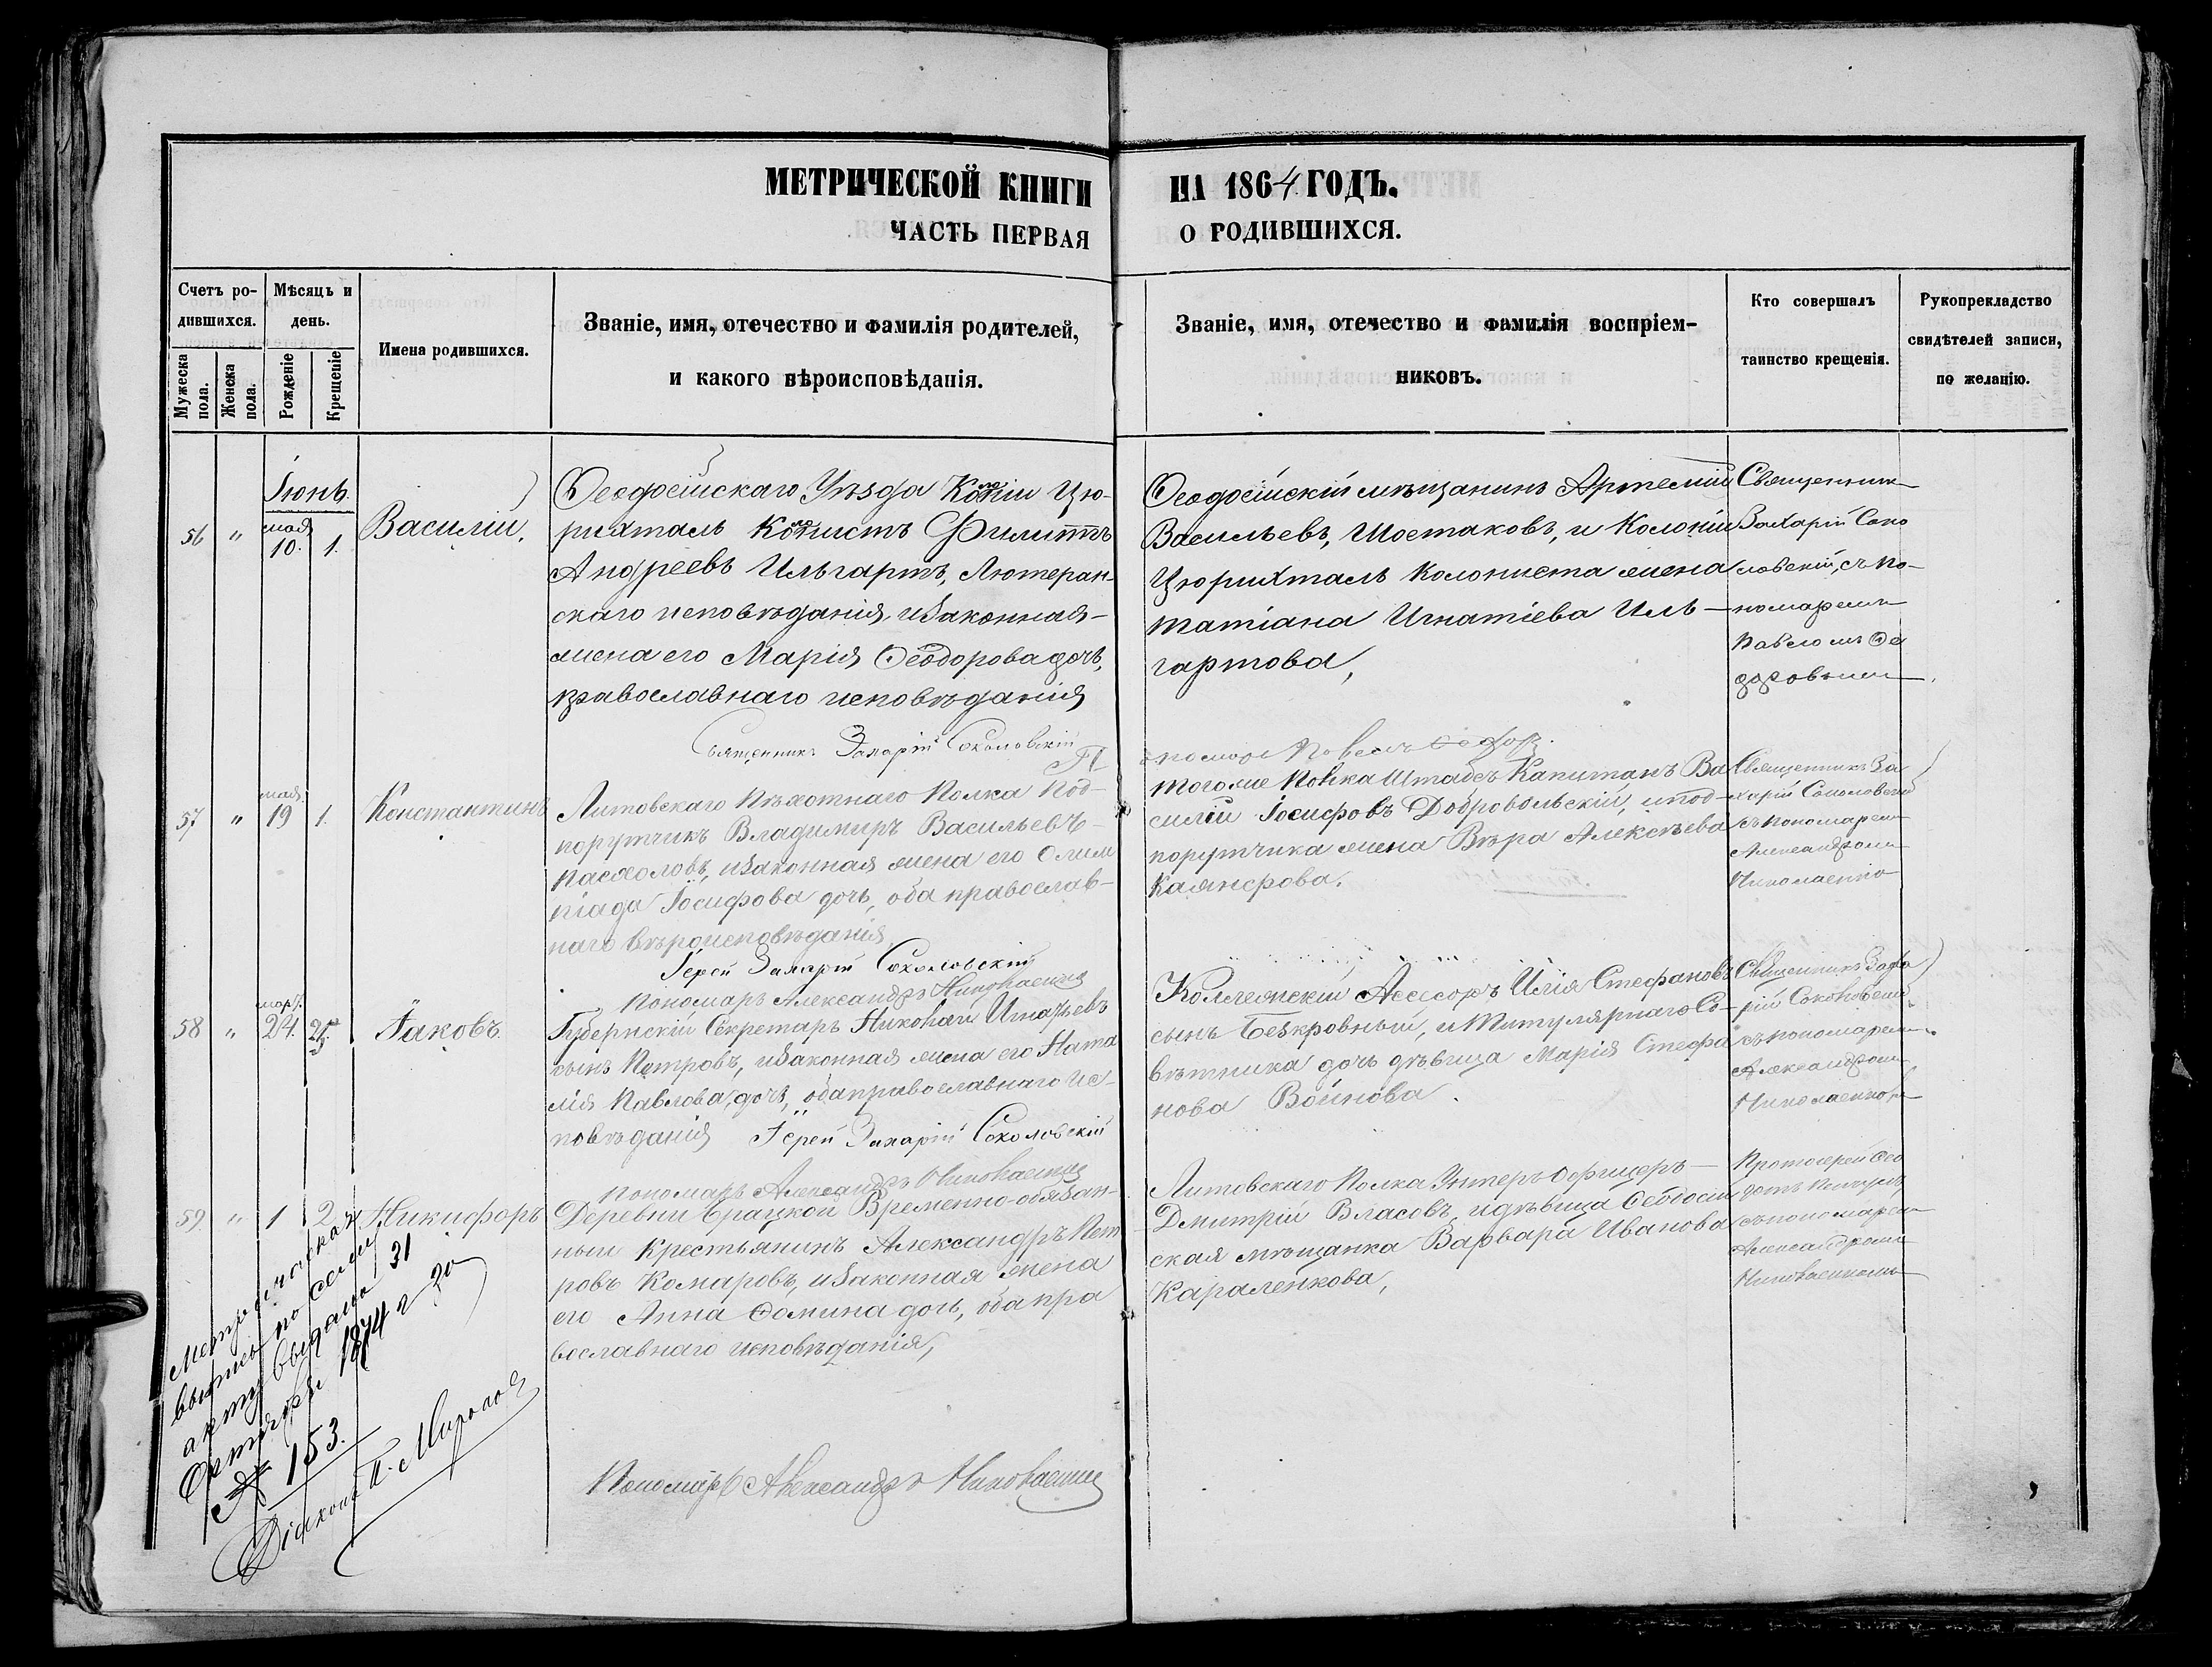 МЕТРИЧЕСКОЙ КНИГИ НА 1864 ГОДЪ.
ЧАСТЬ ПЕРВАЯ О РОДИВШИХСЯ.
Счетъ ро-
дившихся.
Мужеска
пола.
Женска
пола.
Мѣсяцъ и
день.
Рожденіе
Крещеніе
Имена родившихся.
Званіе, имя, отечество и фамилія родителей,
и какого вѣроисповѣданія.
Званіе, имя, отечество и фамилія воспріем-
никовъ.
Кто совершалъ
таинство крещенія.
Рукоприкладство
свидѣтелей записи,
по желанію.
Іюнь.
56 " мая 10. 1. Василій,
Ѳеодосійскаго Уѣзда Колоніи Цю-
рихталь Колонистъ Филиппъ
Андреевъ Ильгартъ, Лютеран-
скаго исповѣданія, и Законная
жена его Марія Ѳеодорова дочь,
православнаго исповѣданія
Священникъ Захарій Соколовскій
Ѳеодосійскій мѣщанинъ Артемій
Васильевъ, Шостаковъ, и Колоніи
Цюрихталь Колониста жена
Татіана Игнатіева Иль-
гартова,
Священник
Захарій Соко
ловскій, съ по-
номаремъ
Павломъ Ѳе
доровымъ
57 " мая 19 1. Константинъ
Литовскаго Пѣхотнаго Полка Под-
порутчикъ Владимиръ Васильевъ
и Законная жена его Олим
піада Іосифова дочь, оба православ-
наго вѣроисповѣданія
Іерей Захарій Соколовскій
Пономарь Александръ Николаенко
тогоже Полка Штабсъ Капитанъ Ва
силій Іосифовъ Добровольскій, и под-
порутчика жена Вѣра Алексѣева
Священникъ За
харій Соколовскій
съ пономарем
Александром
Николаенко
58 " мар. 24. Іаковъ.
Губернскій Секретарь Николай Игнатьевъ
сынъ Петровъ, и Законная жена его Ната
лія Павлова дочь, оба православнаго ис-
повѣданія Іерей Захарій Соколовскій
Пономарь Александръ Николаенко
Коллежскій Асессоръ Илія Стефановъ
сынъ Безкровный, и Титулярнаго Со-
вѣтника дочь дѣвица Марія Стефа
нова Войнова.
Священникъ Заха
рій Соколовскій
съ пономарем
Александром
Николаенко
59 " 1 2 Никифоръ
Деревни Брацкой Временно-обязан-
ный Крестьянинъ Александръ Пет
ровъ Комаровъ, и Законная жена
его Анна Ѳомина дочь, оба пра
вославнаго исповѣданія,
Литовскаго Полка Унтеръ-Офицеръ
Дмитрій Власовъ, и дѣвица
ская мѣщанка Варвара Иванова
Караленкова,
Протоіерей Ѳео
дотъ
съ пономарем
Александром
Николаенкомъ
Метрическая
выпись по сему
акту выдана 31
Октября 1874 г за
№ 153.
Пономарь Александръ Николаенко